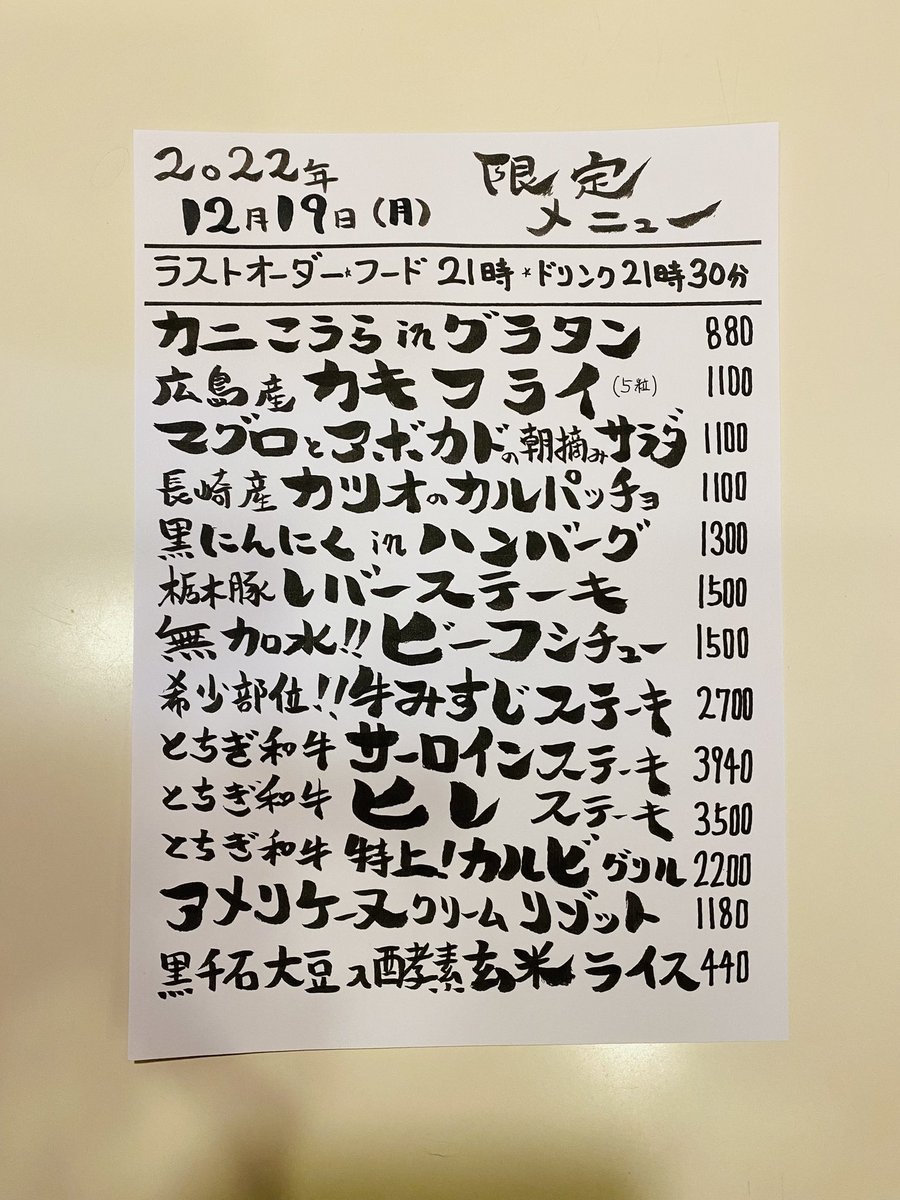 2022年
12月19日(月)
限定
メニュー
ラストオーダー*フード 21時*ドリンク21時30分
カニこうら in グラタン 880
広島産 カキフライ(5粒) 1100
マグロとアボカドの朝摘みサラダ 1100
長崎産 カツオのカルパッチョ 1100
黒にんにく in ハンバーグ 1300
栃木豚 レバーステーキ 1500
無加水!! ビーフシチュー 1500
希少部位!! 牛みすじステーキ 2700
とちぎ和牛 サーロインステーキ 3940
とちぎ和牛 ヒレ ステーキ 3500
とちぎ和牛 特上!カルビグリル 2200
アメリケーヌクリームリゾット 1180
黒千石大豆入酵素玄米ライス 440